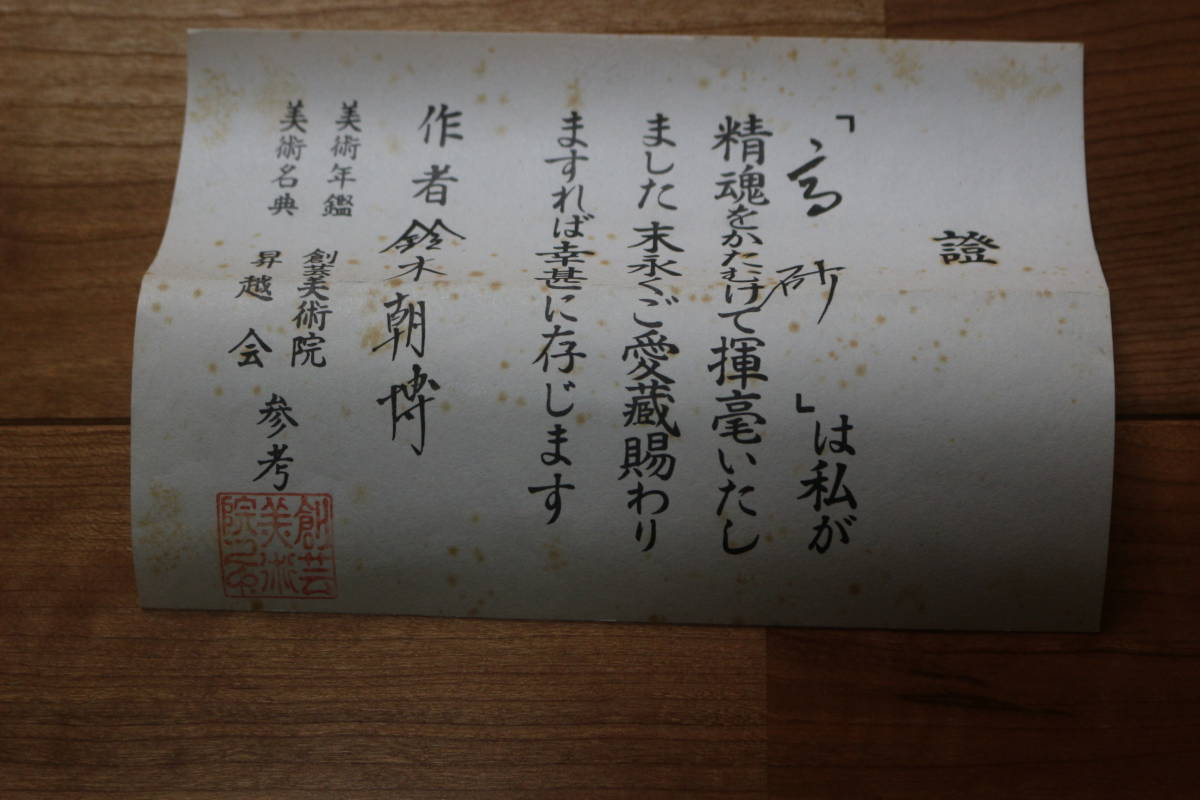 證
「高砂」は私が
精魂をかたむけて揮毫いたし
ました末永くご愛蔵賜わり
ますれば幸甚に存じます
作者 鈴木朝博
美術年鑑 創芸美術院
美術名典 昇越会
参考
創芸
美術
院之印